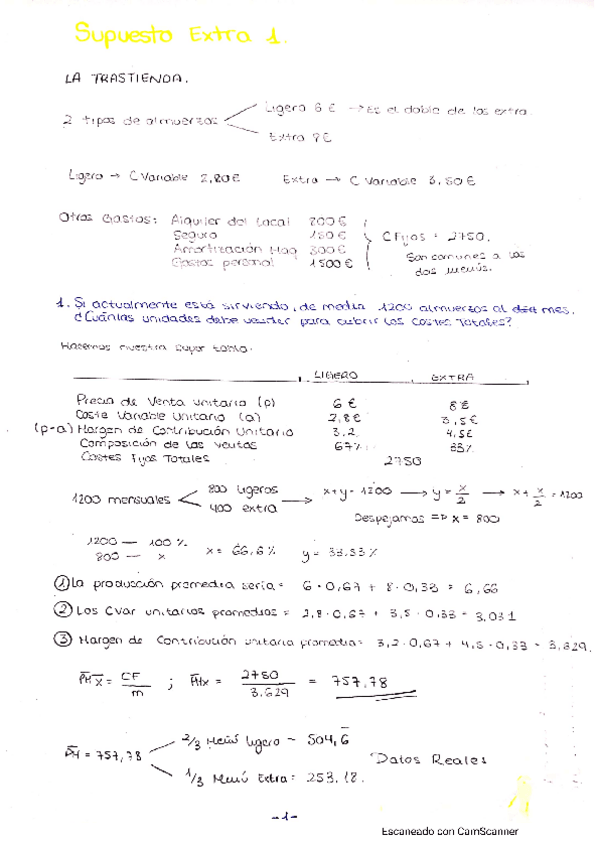 Supuesto Extra 1.
LA TRASTIENDA.
2 tipos de almuerzos
Ligero 6 € → Es el doble de los extra.
Extra 8€
Ligero → C Variable 2,80€ Extra → C Variable 3,50€
Otros Gastos: Alquiler del local 800€
Seguro 150€
Amortización Maq 300€
Gastos personal 1500€
CFijos = 2750.
Son comunes a los
dos menús.
1. Si actualmente está sirviendo, de media 1200 almuerzos al mes.
¿Cuántas unidades debe vender para cubrir los Costes Totales?
Hacemos nuestra super tabla:
LIGERO EXTRA
Precio de Venta unitario (p) 6€ 8€
Coste Variable Unitario (a) 2,8€ 3,5€
(p-a) Margen de Contribución Unitario 3,2 4,5€
Composición de las ventas 67% 33%
Costes Fijos Totales 2750
1200 mensuales
800 ligeros
400 extra
→ x+y = 1200 → y = x/2 → x + x/2 = 1200
Despejamos => x = 800
1200 — 100%
800 — x
x = 66,6% y = 33,33%
① La producción promedia sería = 6·0,67 + 8·0,33 = 6,66
② Los CVar unitarios promedios = 2,8·0,67 + 3,5·0,33 = 3,031
③ Margen de Contribución unitaria promedia = 3,2·0,67 + 4,5·0,33 = 3,629.
= CF/m ; = 2750/3,629 = 757,78
= 757,78
2/3 Menú ligero = 504,6
1/3 Menú Extra = 253,18.
Datos Reales
-1-
Escaneado con CamScanner